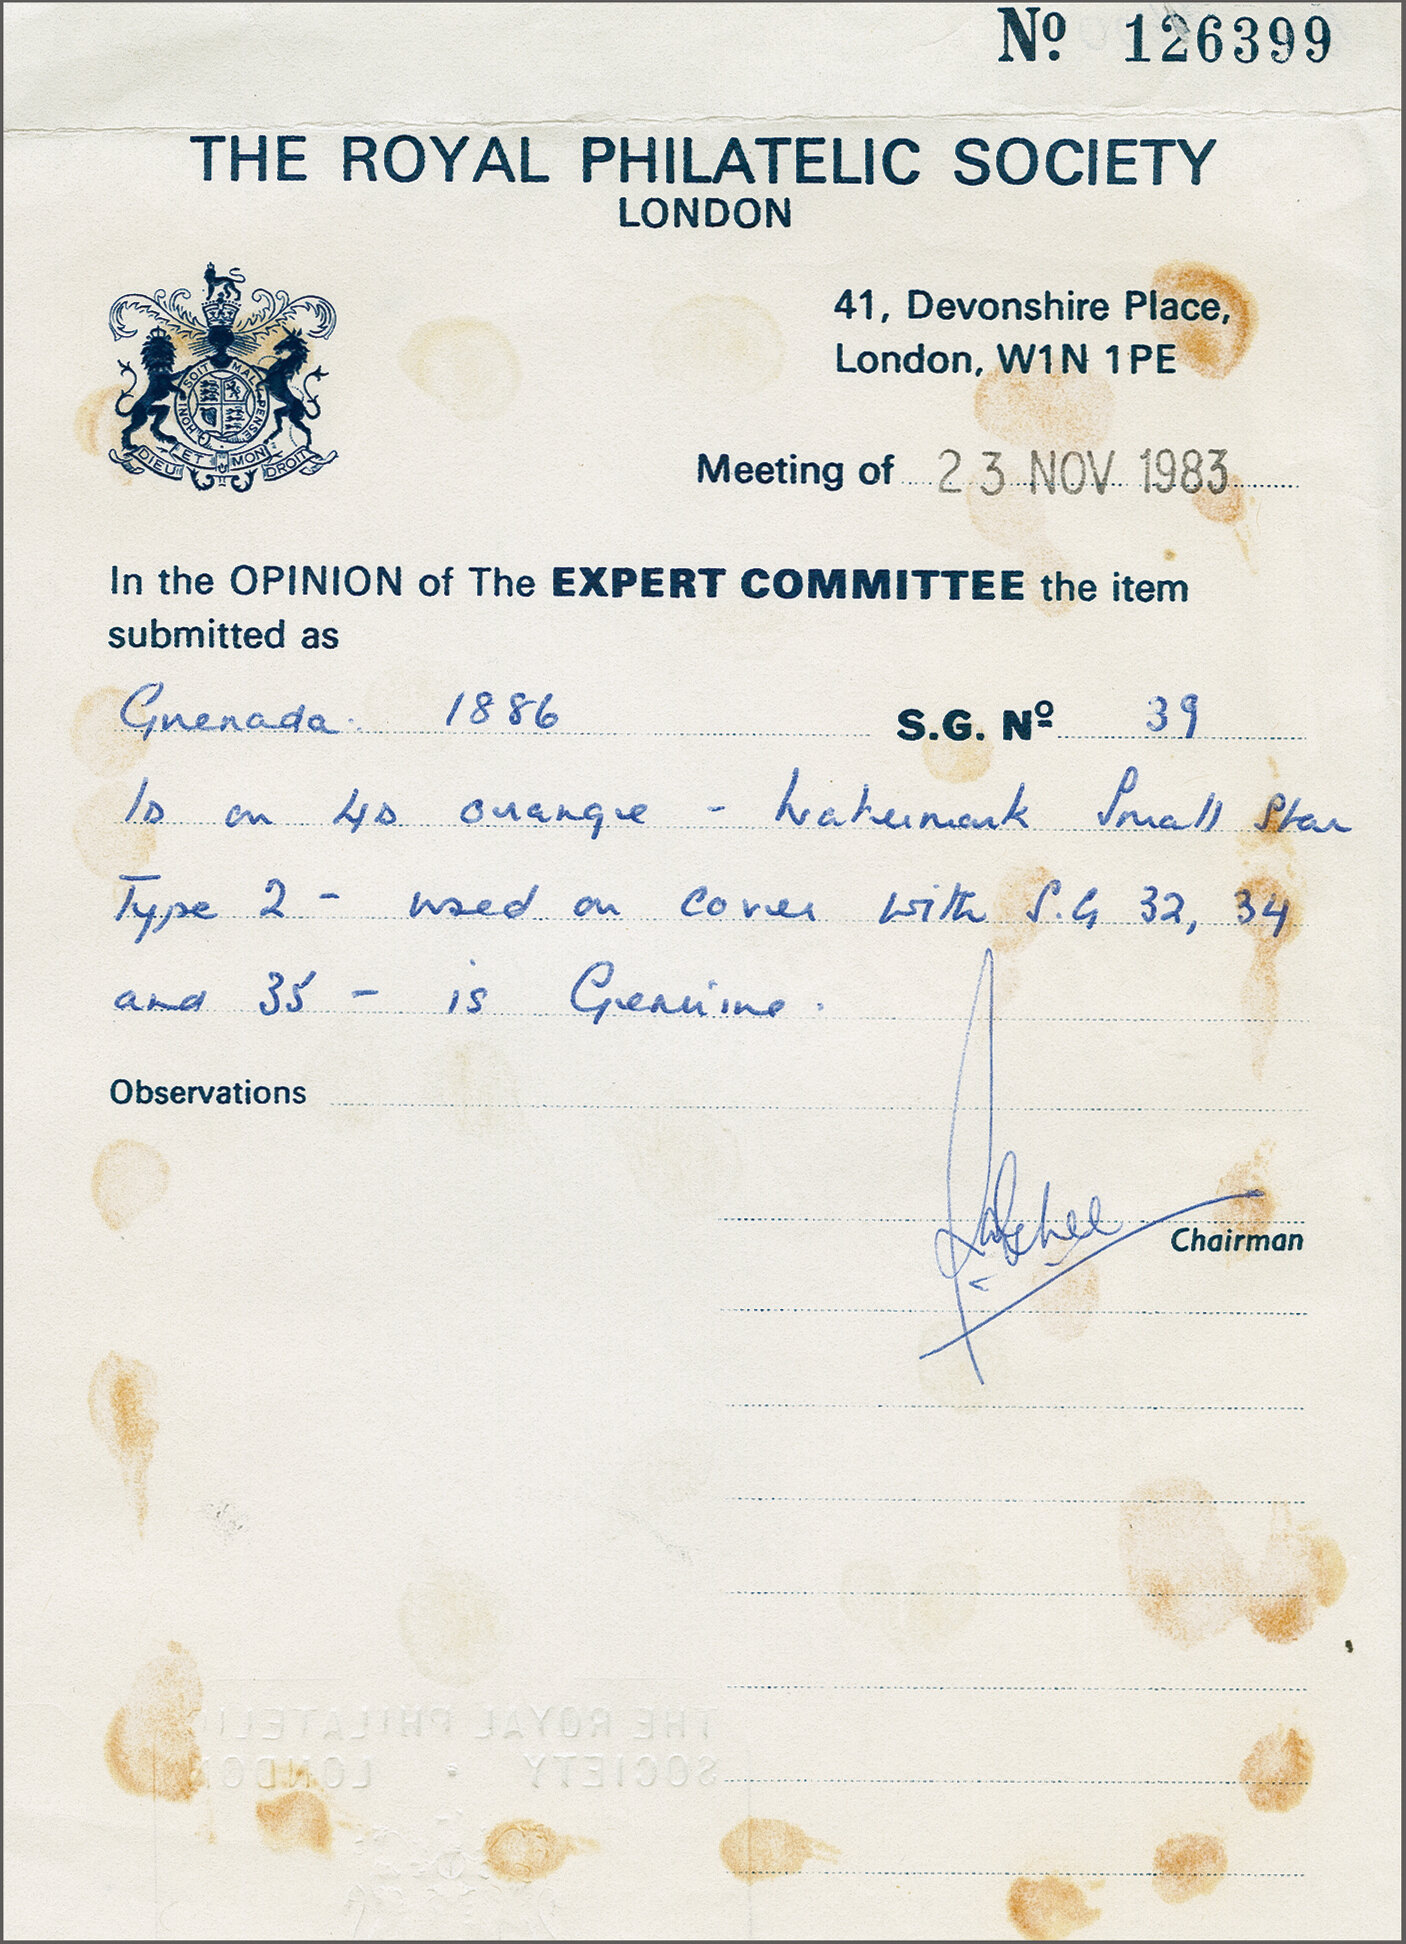 Nº 126399
THE ROYAL PHILATELIC SOCIETY
LONDON
41, Devonshire Place,
London, W1N 1PE
HONI SOIT MAL Y PENSE
DIEU ET MON DROIT
Meeting of 23 NOV 1983
In the OPINION of The EXPERT COMMITTEE the item
submitted as
Grenada 1886 S.G. Nº 39
1d on 4d orange - Watermark Small Star
Type 2 - used on cover with S.G 32, 34
and 35 - is Genuine.
Observations
Chairman
THE ROYAL PHILATELIC
SOCIETY · LONDON